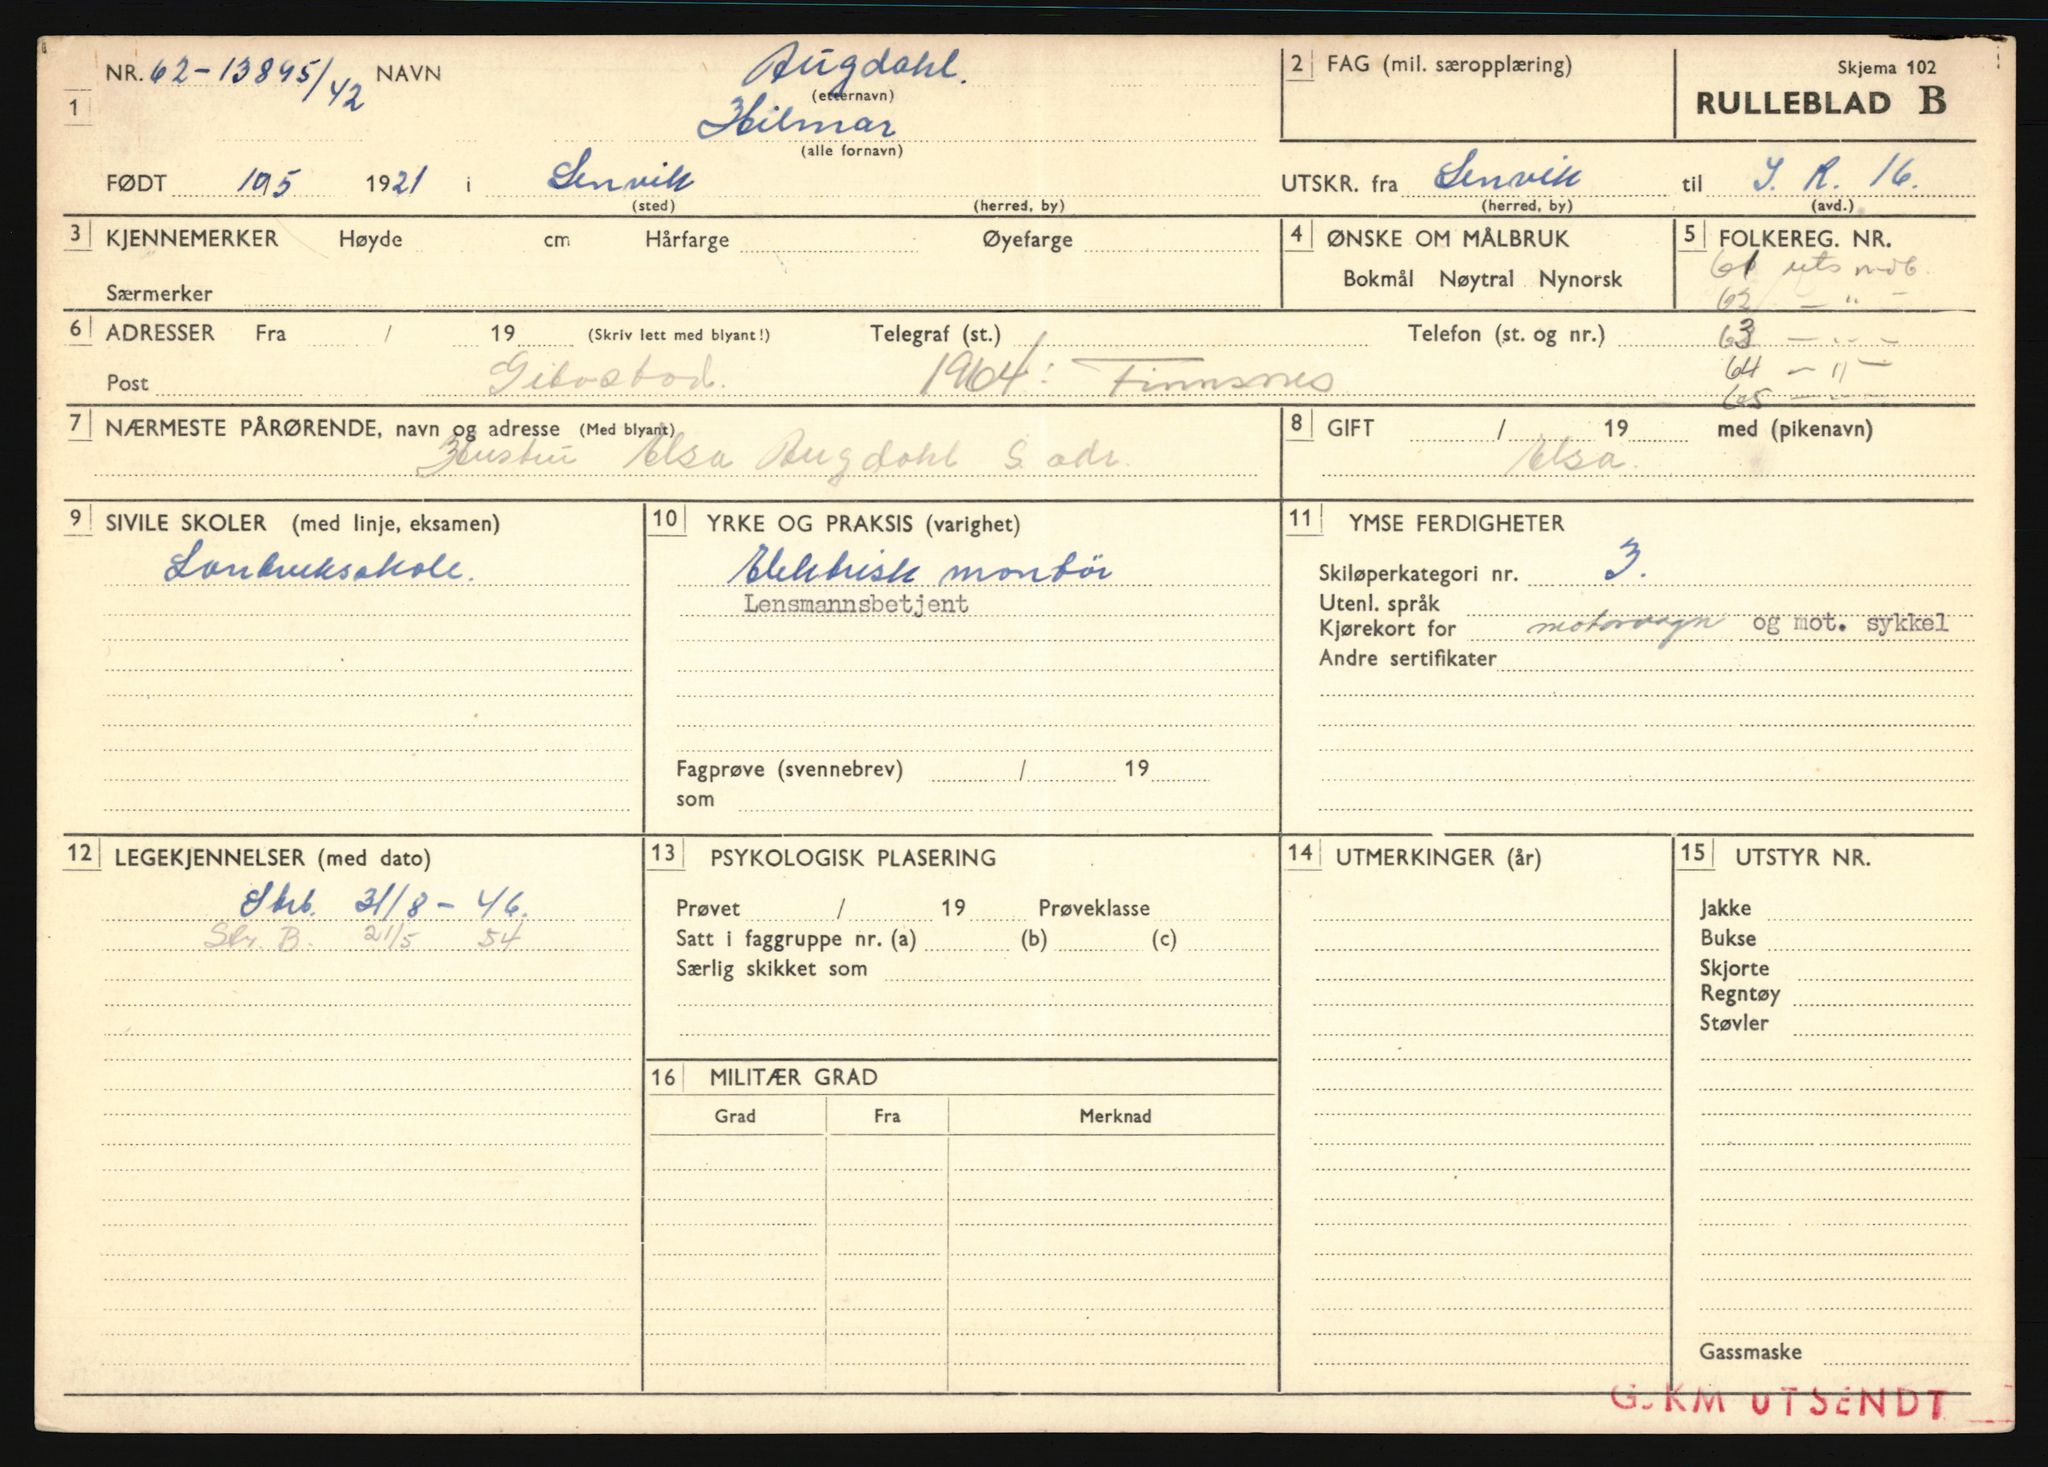 NR. 62-13895/42 NAVN Augdahl.
(etternavn)
1
Hilmar
(alle fornavn)
FØDT 19/5 1921 i Lenvik
(sted) (herred, by)
2 FAG (mil. særopplæring)
Skjema 102
RULLEBLAD B
UTSKR. fra Lenvik til I. R. 16.
(herred, by) (avd.)
3 KJENNEMERKER Høyde cm Hårfarge Øyefarge
Særmerker
4 ØNSKE OM MÅLBRUK
Bokmål Nøytral Nynorsk
5 FOLKEREG. NR.
61 uts mob.
62 — " —
63 — " —
64 — " —
65 — " —
6 ADRESSER Fra / 19 (Skriv lett med blyant!) Telegraf (st.) Telefon (st. og nr.)
Post Gibostad. 1964: Finnsnes
7 NÆRMESTE PÅRØRENDE, navn og adresse (Med blyant)
Hustru Elsa Augdahl S. adr.
8 GIFT / 19 med (pikenavn)
Elsa.
9 SIVILE SKOLER (med linje, eksamen)
Lanbruksskole.
10 YRKE OG PRAKSIS (varighet)
Elektrisk montör
Lensmannsbetjent
Fagprøve (svennebrev) / 19
som
11 YMSE FERDIGHETER
Skiløperkategori nr. 3.
Utenl. språk
Kjørekort for motorvogn og mot. sykkel
Andre sertifikater
12 LEGEKJENNELSER (med dato)
Strb. 31/8 - 46.
Str. B. 21/5 54
13 PSYKOLOGISK PLASERING
Prøvet / 19 Prøveklasse
Satt i faggruppe nr. (a) (b) (c)
Særlig skikket som
14 UTMERKINGER (år)
15 UTSTYR NR.
Jakke
Bukse
Skjorte
Regntøy
Støvler
Gassmaske
16 MILITÆR GRAD
Grad Fra Merknad
G.KM UTSENDT